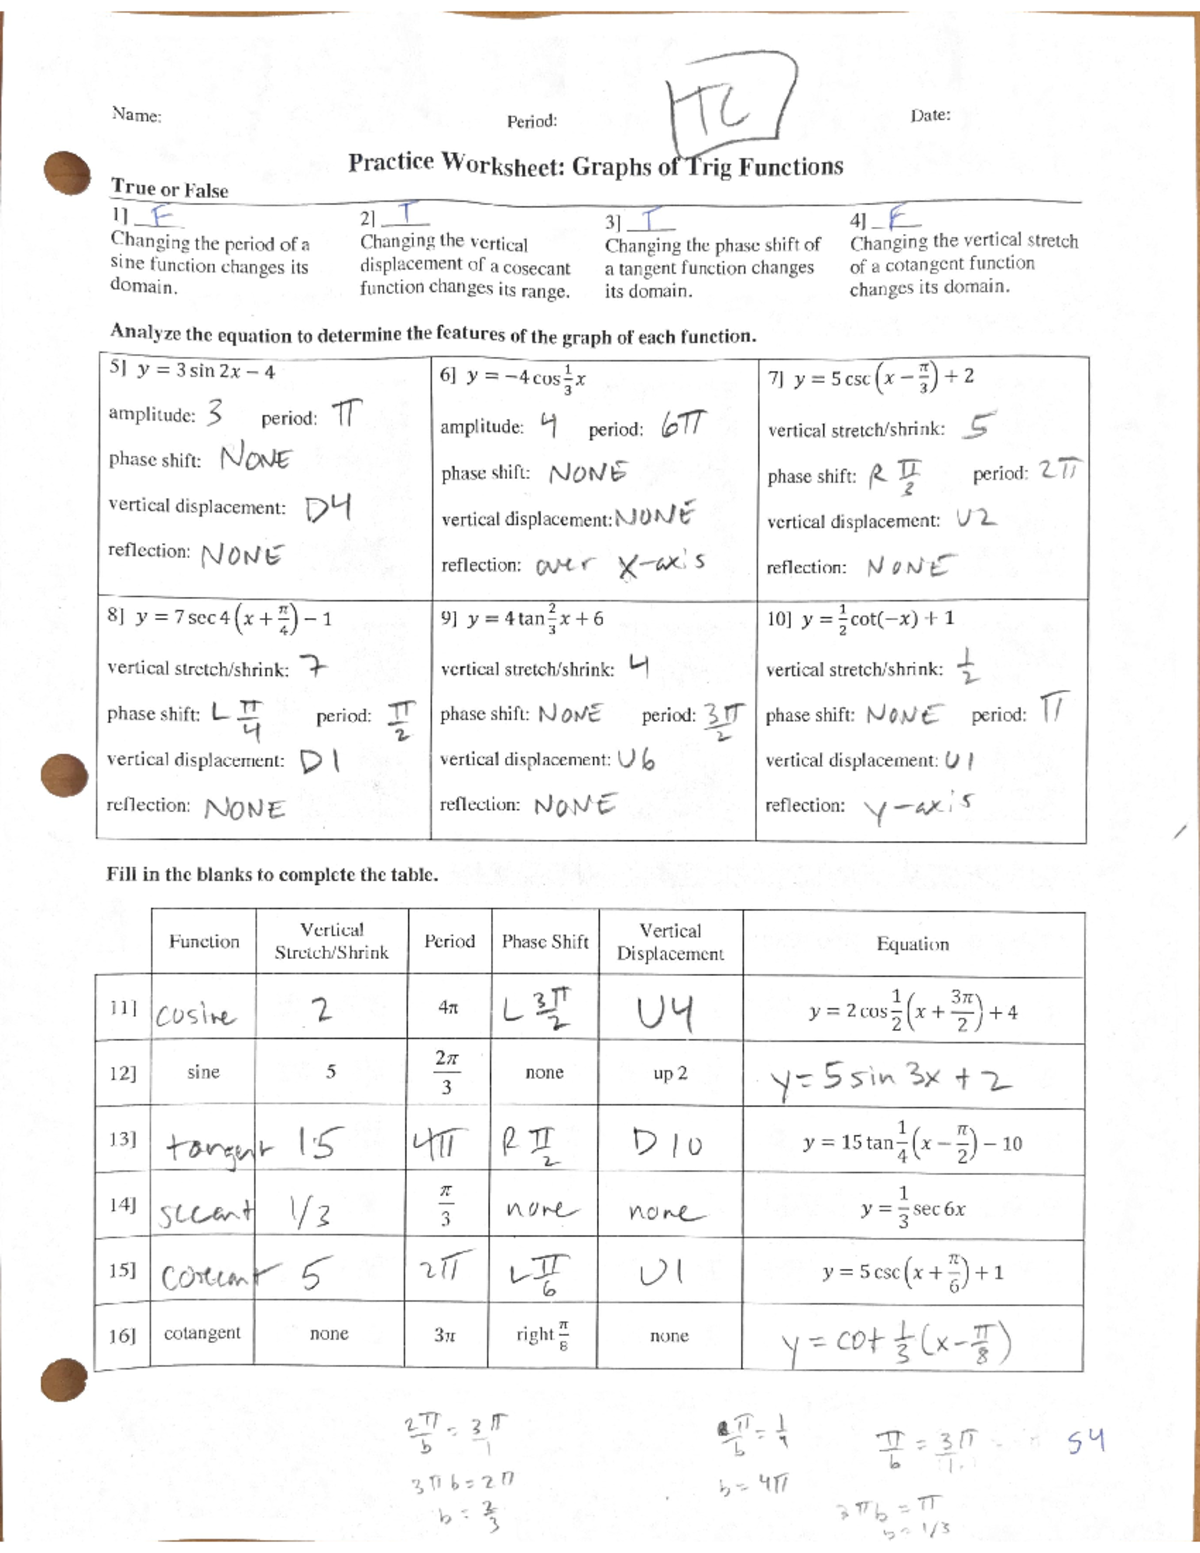 TC
Name: Period: Date:
Practice Worksheet: Graphs of Trig Functions
True or False
1] F 2] T 3] T 4] F
Changing the period of a sine function changes its domain.
Changing the vertical displacement of a cosecant function changes its range.
Changing the phase shift of a tangent function changes its domain.
Changing the vertical stretch of a cotangent function changes its domain.
Analyze the equation to determine the features of the graph of each function.
5] y = 3 sin 2x − 4
amplitude: 3 period: π
phase shift: NONE
vertical displacement: D4
reflection: NONE
6] y = −4 cos 1/3 x
amplitude: 4 period: 6π
phase shift: NONE
vertical displacement: NONE
reflection: over x-axis
7] y = 5 csc (x − π/3) + 2
vertical stretch/shrink: 5
phase shift: R π/3 period: 2π
vertical displacement: U2
reflection: NONE
8] y = 7 sec 4 (x + π/4) − 1
vertical stretch/shrink: 7
phase shift: L π/4 period: π/2
vertical displacement: D1
reflection: NONE
9] y = 4 tan 2/3 x + 6
vertical stretch/shrink: 4
phase shift: NONE period: 3π/2
vertical displacement: U6
reflection: NONE
10] y = 1/2 cot(−x) + 1
vertical stretch/shrink: 1/2
phase shift: NONE period: π
vertical displacement: U1
reflection: y-axis
Fill in the blanks to complete the table.
Function Vertical Stretch/Shrink Period Phase Shift Vertical Displacement Equation
11] cosine 2 4π L 3π/2 U4 y = 2 cos 1/2 (x + 3π/2) + 4
12] sine 5 2π/3 none up 2 y = 5 sin 3x + 2
13] tangent 15 4π R π/2 D10 y = 15 tan 1/4 (x − π/2) − 10
14] secant 1/3 π/3 none none y = 1/3 sec 6x
15] cosecant 5 2π L π/6 U1 y = 5 csc (x + π/6) + 1
16] cotangent none 3π right π/8 none y = cot 1/3 (x − π/8)
2π/b = 3π/1
3πb = 2π
b = 2/3
π/b = 1/4
b = 4π
π/b = 3π/1
3πb = π
b = 1/3
54